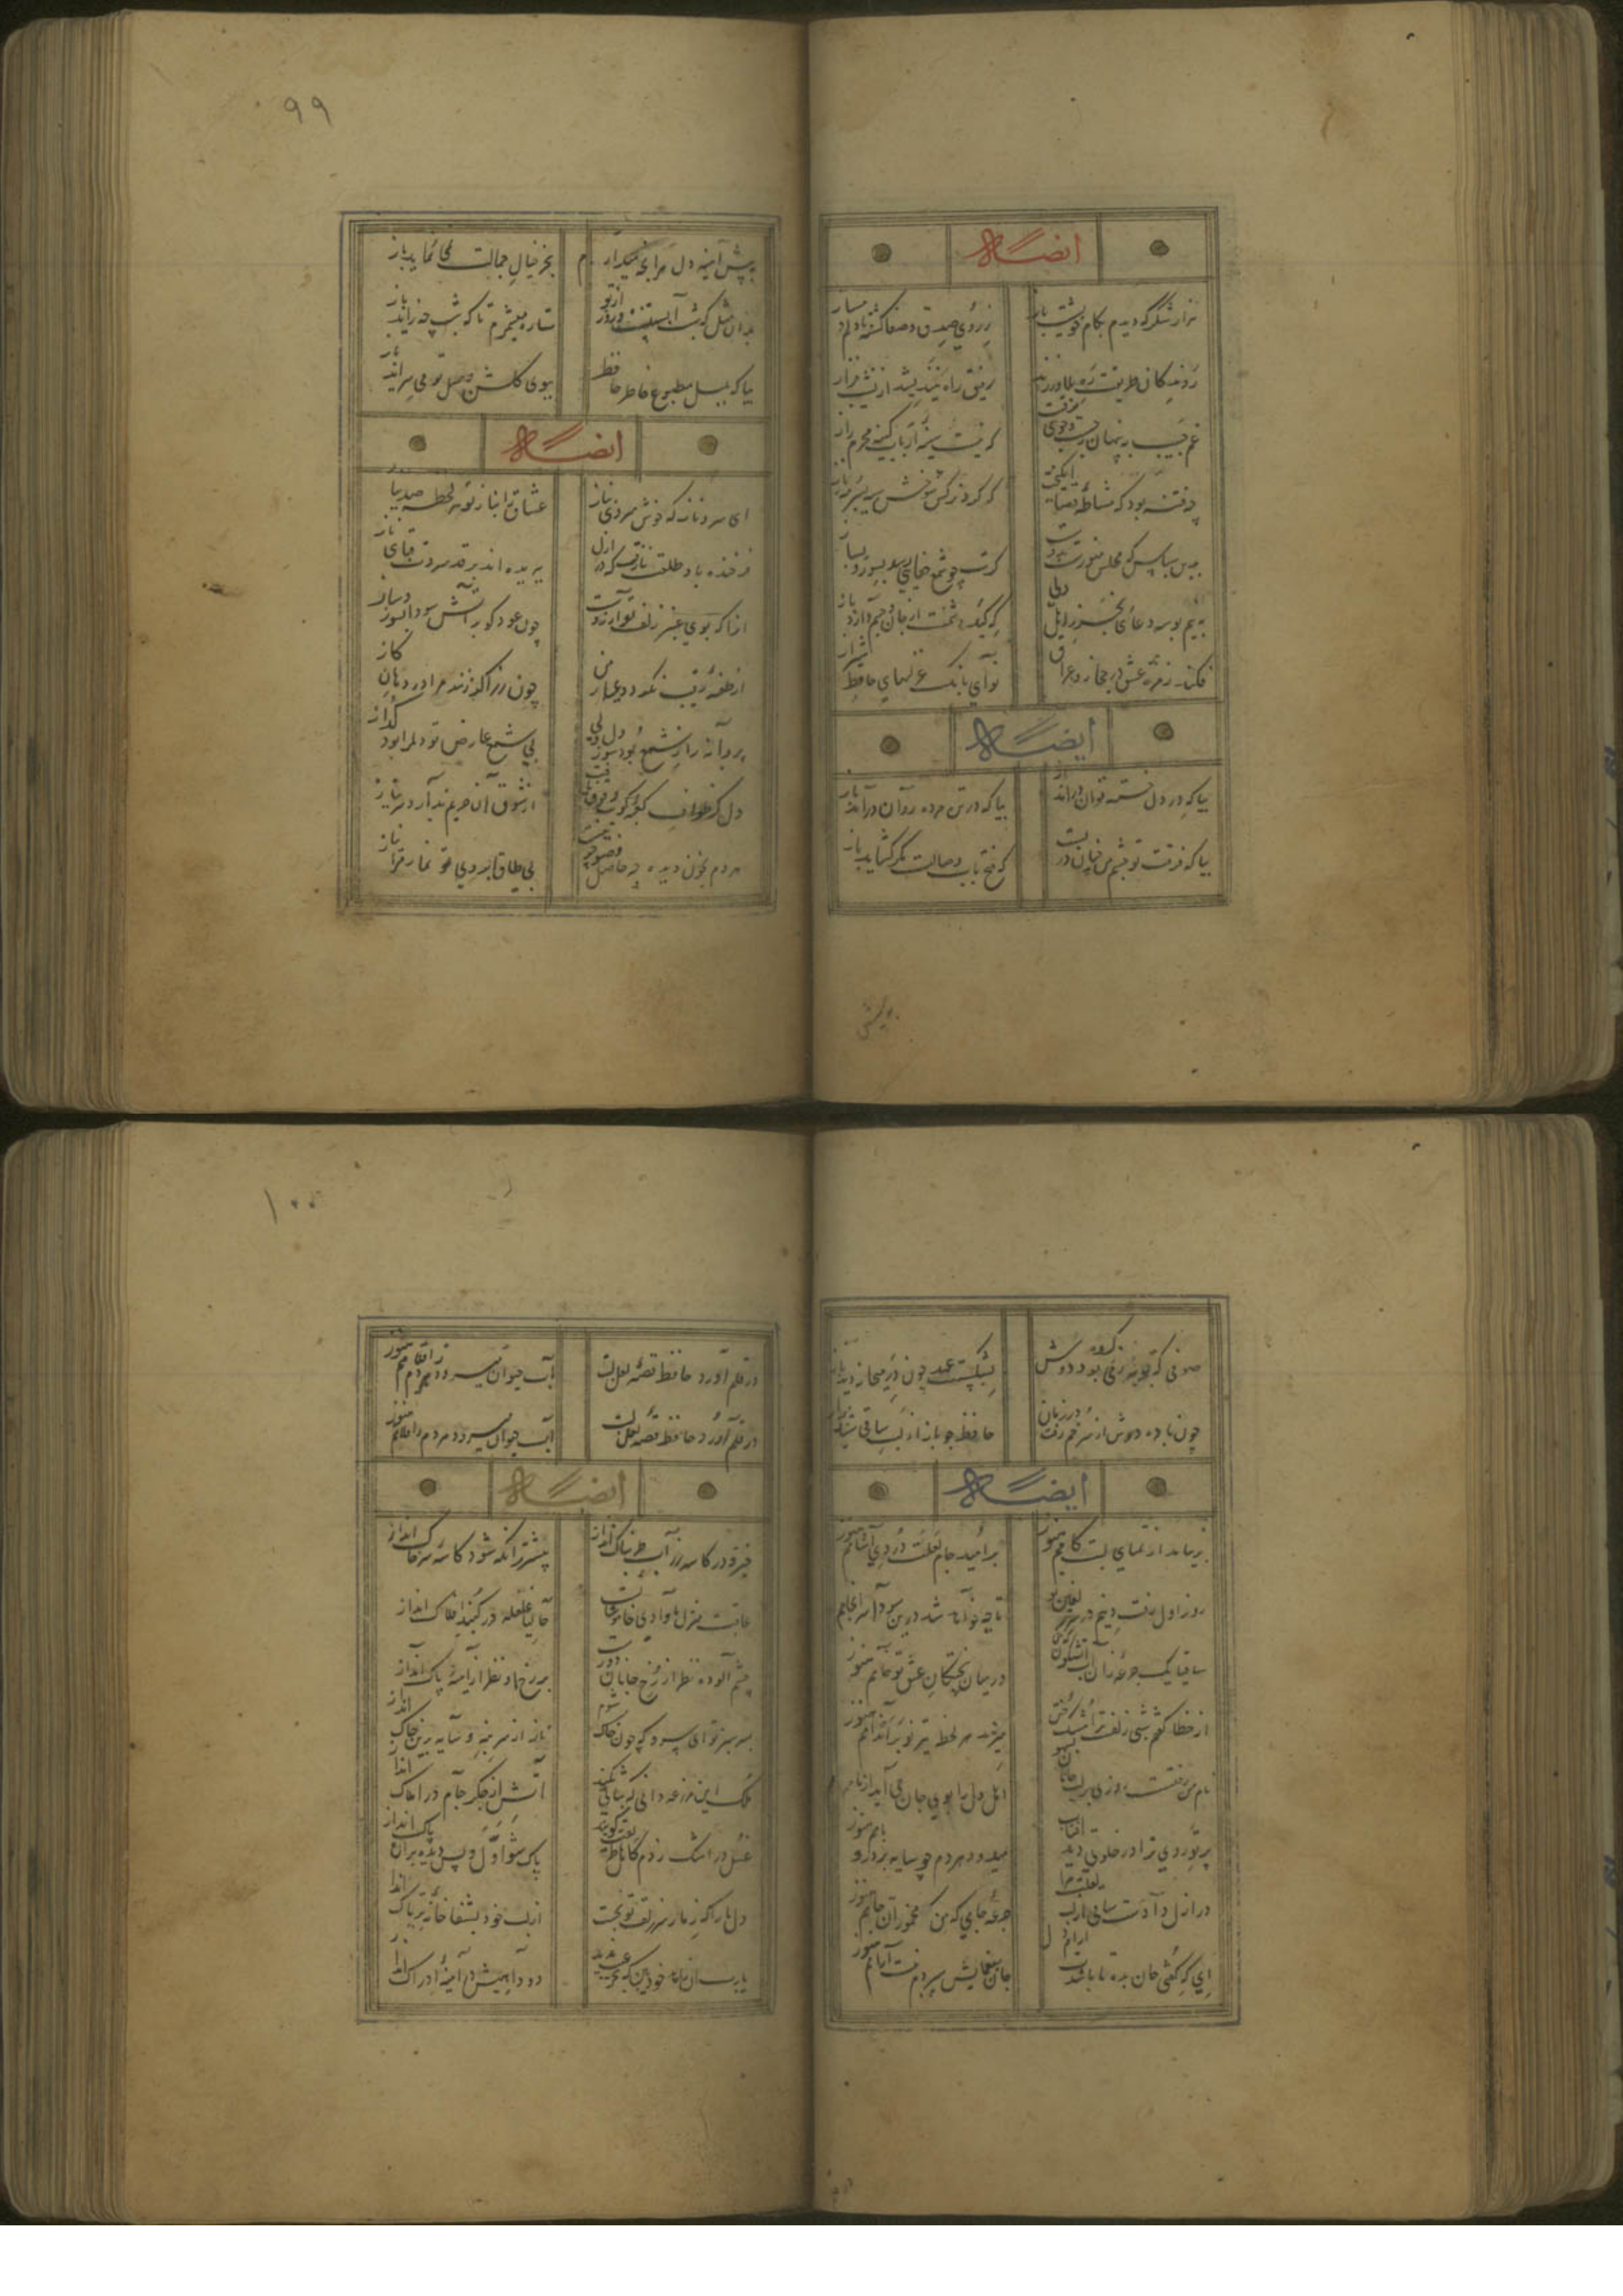 ایضاً له
هزار شکر که دیدم بکام خویشت باز ز روی صدق و صفا گشته با دلم دمساز
روندگان طریقت ره بلا ورزند رفیق راه نیندیشد از نشیب و فراز
غم حبیب نهان به ز جست و جوی رقیب که نیست سینه ارباب کینه محرم راز
چه فتنه بود که مشاطه قضا انگیخت که کرد نرگس شوخش سیه بسرمه ناز
بدین سپاس که مجلس منورست بدوست گرت چو شمع جفایی رسد بسوز و بساز
به نیم بوسه دعائی بخر ز اهل دلی که کید دشمنت از جان و جسم دارد باز
فکند زمزمه عشق در حجاز و عراق نوای بانگ غزلهای حافظ شیراز
ایضاً له
بیا که در دل خسته توان درآید باز بیا که در تن مرده روان درآید باز
بیا که فرقت تو چشم من چنان در بست که فتح باب وصالت مگر گشاید باز
بپیش
۹۹
بپیش آینه دل هر آنچه میدارم بجز خیال جمالت نمی نماید باز
بدان مثل که شب آبستنست روز از تو ستاره میشمرم تا که شب چه زاید باز
بیا که بلبل مطبوع خاطر حافظ ببوی گلشن وصل تو می سراید باز
ایضاً له
ای سرو ناز که خوش میروی بناز عشاق را بناز تو هر لحظه صد نیاز
فرخنده باد طلعت نازت که در ازل ببریده اند بر قد سروت قبای ناز
آنرا که بوی عنبر زلف تو آرزوست چون عود گو بر آتش سودا بسوز و ساز
از طعنه رقیب نگردد عیار من چون زر اگر زنند مرا در دهان گاز
پروانه را ز شمع بود سوز دل ولی بی شمع عارض تو دلم را بود گداز
دل کز طواف کعبه کویت وقوف یافت از شوق آن حریم ندارد سر نیاز
هر دم بخون دیده چه حاصل وضو چو نیست بی طاق ابروی تو نماز مرا نیاز
صوفی که توبه ز می کرده بود دوش بشکست عهد چون در میخانه دید باز
چون باده دوش از سر خم رفت در زبان حافظ چو باز از لب ساقی شنید راز
ایضاً له
بر نیامد از تمنای لبت کامم هنوز بر امید جام لعلت دردی آشامم هنوز
روز اول رفت دینم در سر زلفین تو تا چه خواهد شد درین سودا سرانجامم هنوز
ساقیا یک جرعه زان آب آتشگون که من در میان پختگان عشق تو خامم هنوز
از خطا گفتم شبی زلف ترا مشک ختن میزند هر لحظه تیغی مو بر اندامم هنوز
نام من رفتست روزی بر لب جانان بسهو اهل دل را بوی جان می آید از نامم هنوز
پرتو روی ترا در خلوتم دید آفتاب میدود هر دم چو سایه بر در و بامم هنوز
در ازل دادست ما را ساقی لعل لبت جرعه جامی که من مخمور آن جامم هنوز
ای که گفتی جان بده تا باشدت آرام دل جان بغمهایش سپردم نیست آرامم هنوز
در
۱۰۰
در قلم آورد حافظ قصه لعل لبت آب حیوان میرود هر دم ز اقلامم هنوز
در قلم آورد حافظ قصه لعل لبت آب حیوان میرود هر دم ز اقلامم هنوز
ایضاً له
خیز و در کاسه زر آب طربناک انداز پیشتر زانکه شود کاسه سر خاک انداز
عاقبت منزل ما وادی خاموشانست حالیا غلغله در گنبد افلاک انداز
چشم آلوده نظر از رخ جانان دورست بر رخ او نظر از آینه پاک انداز
بسر سبز تو ای سرو که چون خاک شوم ناز از سر بنه و سایه برین خاک انداز
ملک این مزرعه دانی که ثباتی نکند آتشی از جگر جام در املاک انداز
غسل در اشک زدم کاهل طریقت گویند پاک شو اول و پس دیده بر آن پاک انداز
دل ما را که ز مار سر زلف تو بخست از لب خود بشفاخانه تریاک انداز
یارب آن زاهد خود بین که بجز عیب ندید دود آهیش در آینه ادراک انداز